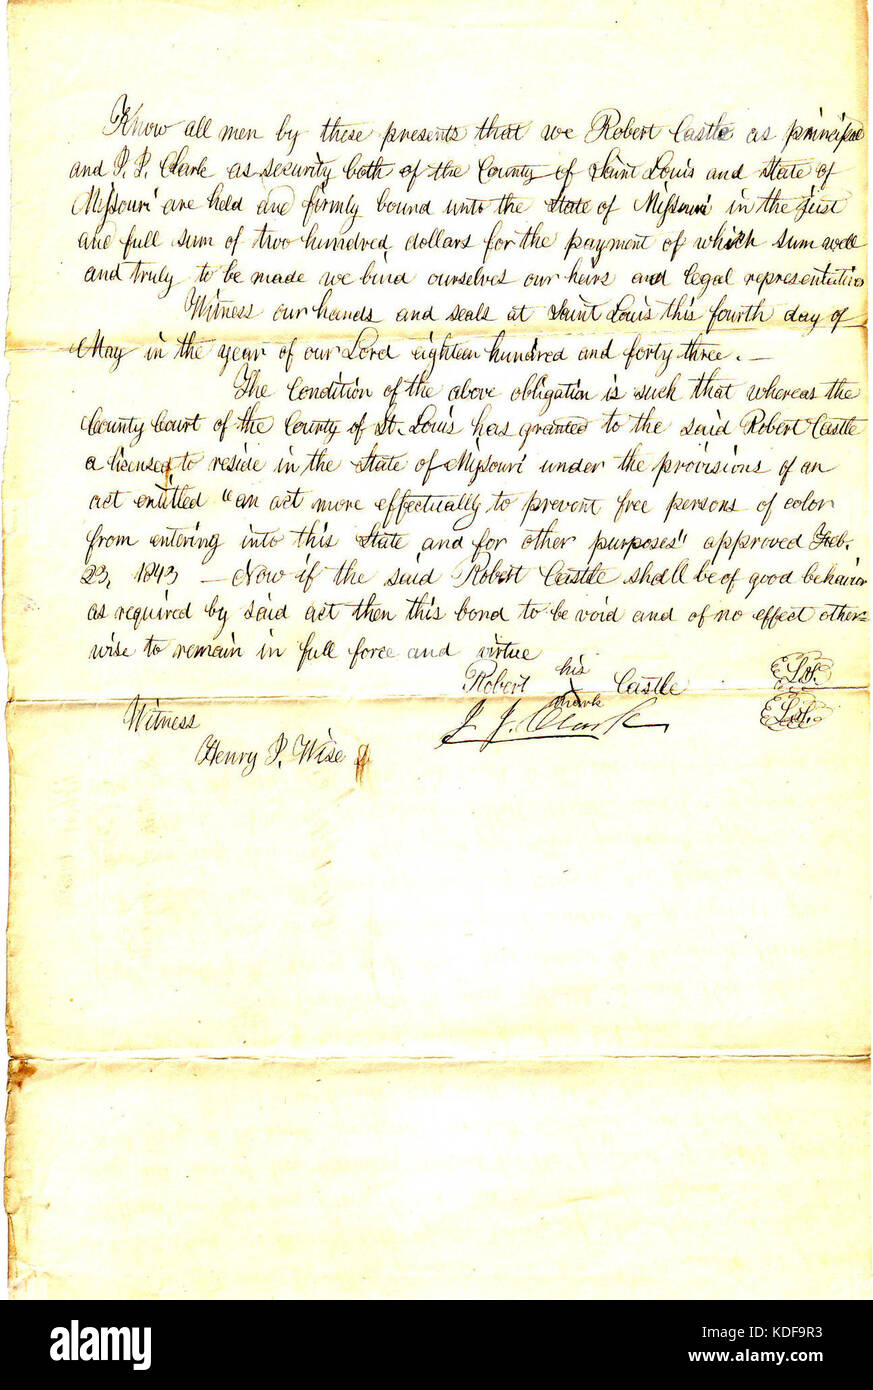 Know all men by these presents that we Robert Castle as principal
and J. J. Clark as security both of the County of Saint Louis and State of
Missouri are held and firmly bound unto the State of Missouri in the just
and full sum of two hundred dollars for the payment of which sum well
and truly to be made we bind ourselves our heirs and legal representatives
Witness our hands and seals at Saint Louis this fourth day of
May in the year of our Lord eighteen hundred and forty three. —
The Condition of the above obligation is such that whereas the
County Court of the County of St. Louis has granted to the said Robert Castle
a licensed to reside in the State of Missouri under the provisions of an
act entitled "an act more effectually to prevent free persons of color
from entering into this State and for other purposes" approved Feb.
23, 1843 — Now if the said Robert Castle shall be of good behavior
as required by said act then this bond to be void and of no effect other=
wise to remain in full force and virtue
his
Robert X Castle
mark
J. J. Clark
Witness
Henry P. Wise
alamy
Image ID: KDF9R3
www.alamy.com